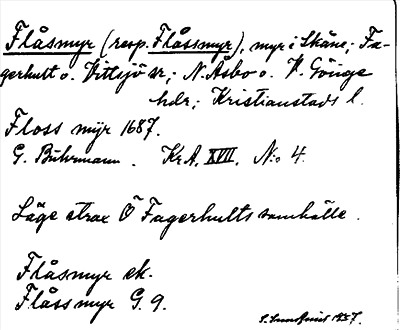 Flåsmyr (resp. Flåssmyr), myr i Skåne; Fa-
gerhult o. Vittsjö sr; N. Åsbo o. V. Göinge
hdr; Kristianstads l.
Floss myr 1687.
G. Buhrmann. KrA. XVII. N:o 4.
Läge strax Ö Fagerhults samhälle.
Flåsmyr ek.
Flåssmyr G. 9.
S. Lundquist 1937.